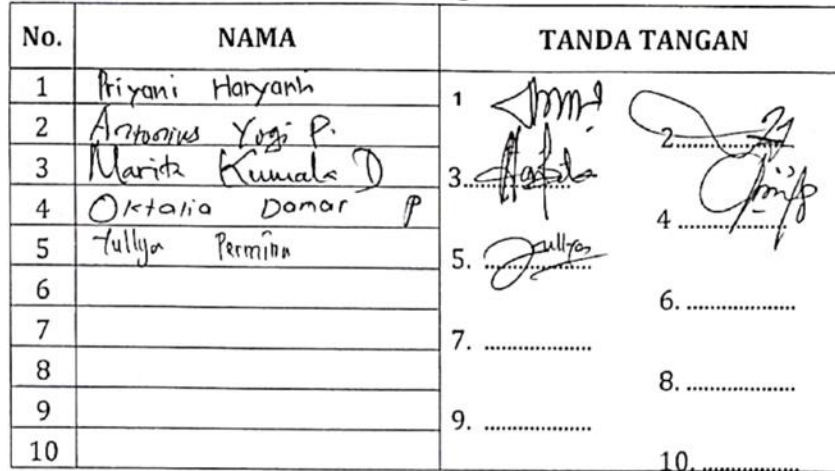 No. NAMA TANDA TANGAN
1 Priyani Haryanti 1
2 Antonius Yogi P. 2..................
3 Marita Kumala D 3..................
4 Oktalia Damar P 4..................
5 Yullya Permina 5. Yullya
6 6. ..................
7 7. ..................
8 8. ..................
9 9. ..................
10 10. ..................